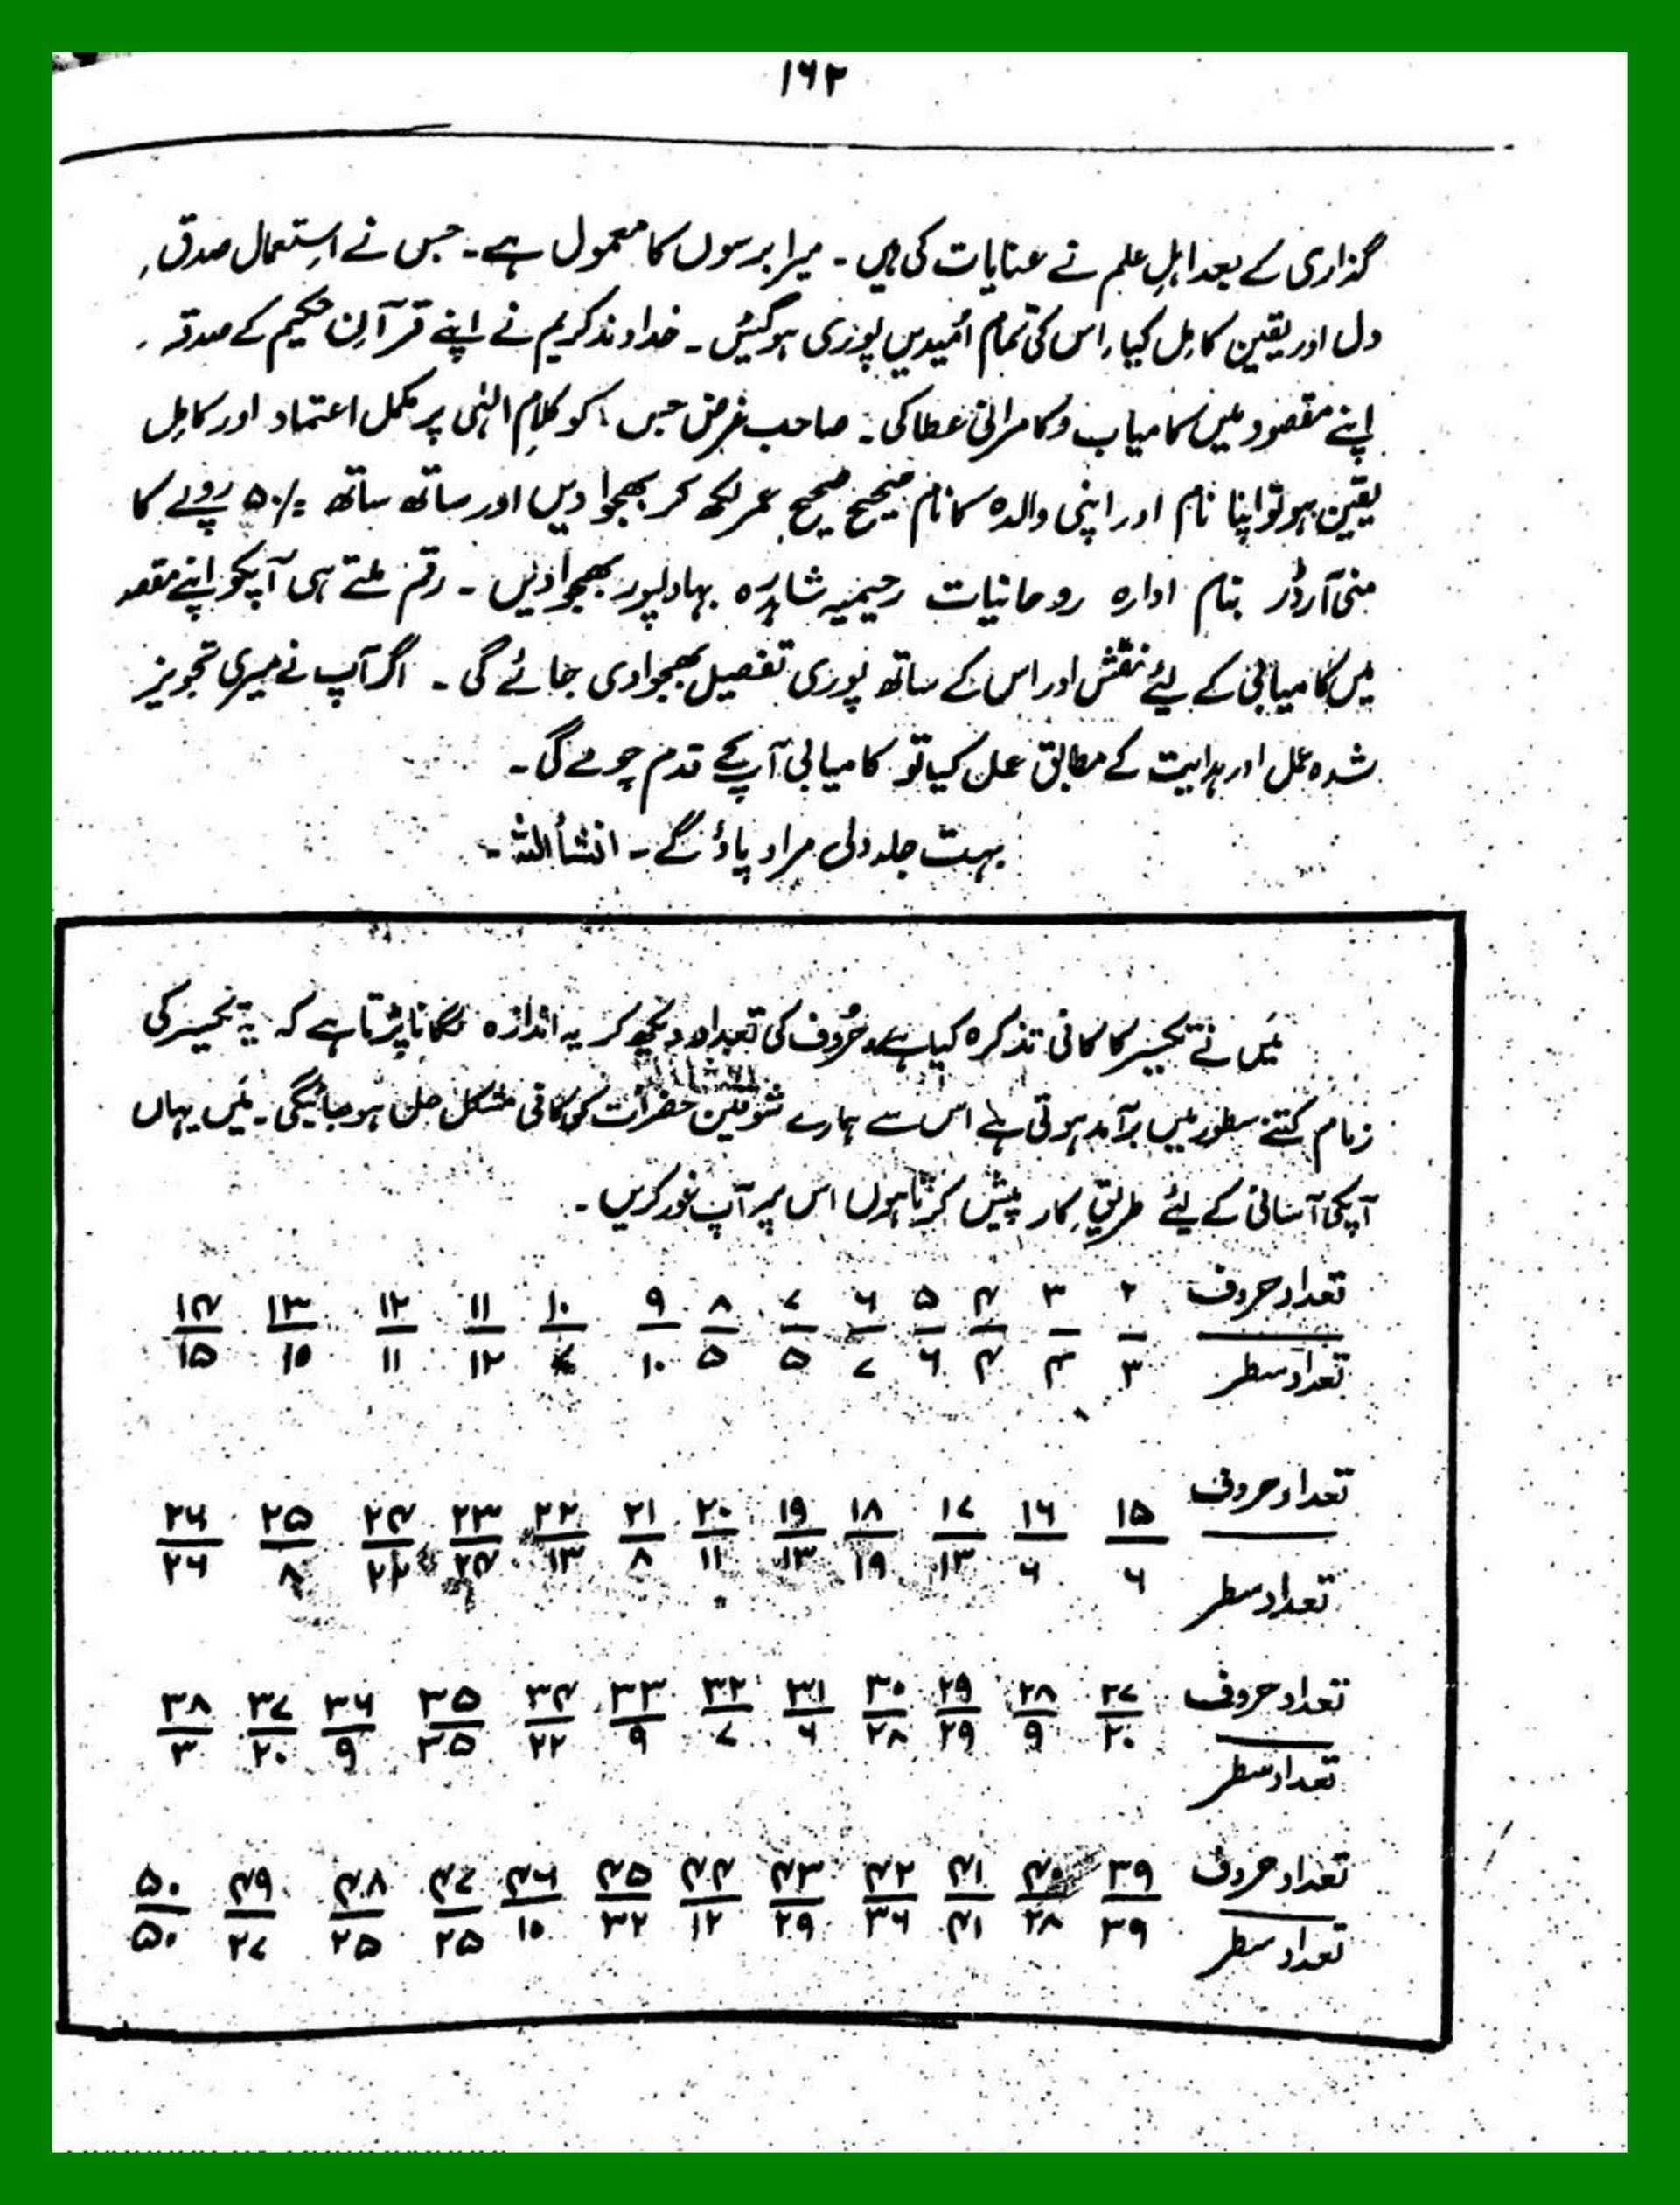 ۱۶۲
گذاری کے بعد اہلِ علم نے عنایات کی ہیں ۔ میرا برسوں کا معمول ہے ۔ جس نے استعمال صدق
دل اور یقین کامل کیا، اس کی تمام اُمیدیں پوری ہوگئیں ۔ خداوند کریم نے اپنے قرآنِ حکیم کے صدقہ
اپنے مقصود میں کامیاب و کامرانی عطا کی ۔ صاحب غرض جس کو کلامِ الٰہی پر مکمل اعتماد اور کامل
یقین ہو تو اپنا نام اور اپنی والدہ کا نام صحیح صحیح عمر لکھ کر بھجوا دیں اور ساتھ ساتھ ۵۰/= روپے کا
منی آرڈر بنام ادارہ روحانیات رحیمیہ شاہدرہ بہاولپور بھجوا دیں ۔ رقم ملتے ہی آپکو اپنے مقصد
میں کامیابی کے لیئے نقش اور اس کے ساتھ پوری تفصیل بھجوا دی جائے گی ۔ اگر آپ نے میری تجویز
شدہ عمل اور ہدایت کے مطابق عمل کیا تو کامیابی آپکے قدم چومے گی ۔
بہت جلد دلی مراد پاؤ گے ۔ انشأاللہ ۔
میں نے تکسیر کا کافی تذکرہ کیا ہے، حُروف کی تعداد دیکھ کر یہ اندازہ لگانا پڑتا ہے کہ یہ تکسیر کی
زمام کتنے سطور میں برآمد ہوتی ہے اس سے ہمارے شوقین حضرات کی کافی مشکل حل ہو جائیگی ۔ میں یہاں
آپکی آسانی کے لیئے طریق کار پیش کرتا ہوں اس پر آپ غور کریں ۔
تعداد حروف ۲ ۳ ۴ ۵ ۶ ۷ ۸ ۹ ۱۰ ۱۱ ۱۲ ۱۳ ۱۴
تعداد سطر ۳ ۳ ۴ ۶ ۷ ۵ ۵ ۱۰ ۱۲ ۱۱ ۱۰ ۱۵
تعداد حروف ۱۵ ۱۶ ۱۷ ۱۸ ۱۹ ۲۰ ۲۱ ۲۲ ۲۳ ۲۴ ۲۵ ۲۶
تعداد سطر ۶ ۶ ۱۳ ۱۹ ۱۳ ۱۱ ۸ ۱۳ ۲۴ ۲۲ ۸ ۲۶
تعداد حروف ۲۷ ۲۸ ۲۹ ۳۰ ۳۱ ۳۲ ۳۳ ۳۴ ۳۵ ۳۶ ۳۷ ۳۸
تعداد سطر ۲۰ ۹ ۲۹ ۲۸ ۶ ۷ ۹ ۲۲ ۳۵ ۹ ۲۰ ۳
تعداد حروف ۳۹ ۴۰ ۴۱ ۴۲ ۴۳ ۴۴ ۴۵ ۴۶ ۴۷ ۴۸ ۴۹ ۵۰
تعداد سطر ۳۹ ۲۸ ۴۱ ۳۶ ۲۹ ۱۲ ۳۲ ۱۰ ۲۵ ۲۵ ۲۷ ۵۰